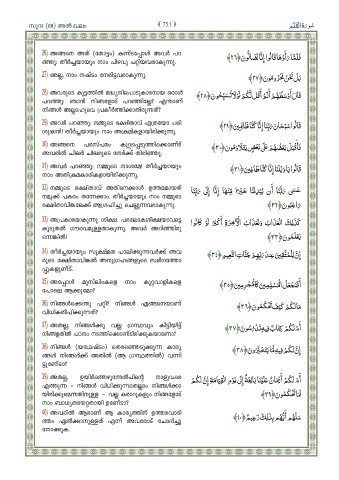 സൂറ (68) അൽഖലം
﴾ 751 ﴿
سورة القلم
26) അങ്ങനെ അത് (തോട്ടം) കണ്ടപ്പോൾ അവർ പറ
ഞ്ഞു: തീർച്ചയായും നാം പിഴവു പറ്റിയവരാകുന്നു.
فَلَمَّا رَأَوْهَا قَالُوا إِنَّا لَضَالُّونَ ﴿٢٦﴾
27) അല്ല, നാം നഷ്ടം നേരിട്ടവരാകുന്നു.
بَلْ نَحْنُ مَحْرُومُونَ ﴿٢٧﴾
28) അവരുടെ കൂട്ടത്തിൽ മദ്ധ്യനിലപാടുകാരനായ ഒരാൾ
പറഞ്ഞു: ഞാൻ നിങ്ങളോട് പറഞ്ഞില്ലേ? എന്താണ്
നിങ്ങൾ അല്ലാഹുവെ പ്രകീർത്തിക്കാതിരുന്നത്?
قَالَ أَوْسَطُهُمْ أَلَمْ أَقُل لَّكُمْ لَوْلَا تُسَبِّحُونَ ﴿٢٨﴾
29) അവർ പറഞ്ഞു: നമ്മുടെ രക്ഷിതാവ് എത്രയോ പരി
ശുദ്ധൻ! തീർച്ചയായും നാം അക്രമികളായിരിക്കുന്നു.
قَالُوا سُبْحَانَ رَبِّنَا إِنَّا كُنَّا ظَالِمِينَ ﴿٢٩﴾
30) അങ്ങനെ പരസ്പരം കുറ്റപ്പെടുത്തിക്കൊണ്ട്
അവരിൽ ചിലർ ചിലരുടെ നേർക്ക് തിരിഞ്ഞു.
فَأَقْبَلَ بَعْضُهُمْ عَلَىٰ بَعْضٍ يَتَلَاوَمُونَ ﴿٣٠﴾
31) അവർ പറഞ്ഞു: നമ്മുടെ നാശമേ! തീർച്ചയായും
നാം അതിക്രമകാരികളായിരിക്കുന്നു.
قَالُوا يَا وَيْلَنَا إِنَّا كُنَّا طَاغِينَ ﴿٣١﴾
32) നമ്മുടെ രക്ഷിതാവ് അതിനെക്കാൾ ഉത്തമമായത്
നമുക്ക് പകരം തന്നേക്കാം. തീർച്ചയായും നാം നമ്മുടെ
രക്ഷിതാവിങ്കലേക്ക് ആഗ്രഹിച്ചു ചെല്ലുന്നവരാകുന്നു.
عَسَىٰ رَبُّنَا أَن يُبْدِلَنَا خَيْرًا مِّنْهَا إِنَّا إِلَىٰ رَبِّنَا
رَاغِبُونَ ﴿٣٢﴾
33) അപ്രകാരമാകുന്നു ശിക്ഷ. പരലോകശിക്ഷയാവട്ടെ
കൂടുതൽ ഗൗരവമുള്ളതാകുന്നു. അവർ അറിഞ്ഞിരു
ന്നെങ്കിൽ!
كَذَٰلِكَ الْعَذَابُ وَلَعَذَابُ الْآخِرَةِ أَكْبَرُ لَوْ كَانُوا
يَعْلَمُونَ ﴿٣٣﴾
34) തീർച്ചയായും സൂക്ഷ്മത പാലിക്കുന്നവർക്ക് അവ
രുടെ രക്ഷിതാവിങ്കൽ അനുഗ്രഹങ്ങളുടെ സ്വർഗത്തോ
പ്പുകളുണ്ട്.
إِنَّ لِلْمُتَّقِينَ عِندَ رَبِّهِمْ جَنَّاتِ النَّعِيمِ ﴿٣٤﴾
35) അപ്പോൾ മുസ്ലിംകളെ നാം കുറ്റവാളികളെ
പോലെ ആക്കുമോ?
أَفَنَجْعَلُ الْمُسْلِمِينَ كَالْمُجْرِمِينَ ﴿٣٥﴾
36) നിങ്ങൾക്കെന്തു പറ്റി? നിങ്ങൾ എങ്ങനെയാണ്
വിധികൽപിക്കുന്നത്?
مَا لَكُمْ كَيْفَ تَحْكُمُونَ ﴿٣٦﴾
37) അതല്ല, നിങ്ങൾക്കു വല്ല ഗ്രന്ഥവും കിട്ടിയിട്ട്
നിങ്ങളതിൽ പഠനം നടത്തിക്കൊണ്ടിരിക്കുകയാണോ?
أَمْ لَكُمْ كِتَابٌ فِيهِ تَدْرُسُونَ ﴿٣٧﴾
38) നിങ്ങൾ (യഥേഷ്ടം) തെരഞ്ഞെടുക്കുന്ന കാര്യ
ങ്ങൾ നിങ്ങൾക്ക് അതിൽ (ആ ഗ്രന്ഥത്തിൽ) വന്നി
ട്ടുണ്ടോ?
إِنَّ لَكُمْ فِيهِ لَمَا تَخَيَّرُونَ ﴿٣٨﴾
39) അതല്ല, ഉയിർത്തെഴുന്നേൽപിന്റെ നാളുവരെ
എത്തുന്ന – നിങ്ങൾ വിധിക്കുന്നതെല്ലാം നിങ്ങൾക്കാ
യിരിക്കുമെന്നതിനുള്ള – വല്ല കരാറുകളും നിങ്ങളോട്
നാം ബാധ്യതയേറ്റതായി ഉണ്ടോ?
أَمْ لَكُمْ أَيْمَانٌ عَلَيْنَا بَالِغَةٌ إِلَىٰ يَوْمِ الْقِيَامَةِ إِنَّ لَكُمْ
لَمَا تَحْكُمُونَ ﴿٣٩﴾
40) അവരിൽ ആരാണ് ആ കാര്യത്തിന് ഉത്തരവാദി
ത്തം ഏൽക്കാനുള്ളത് എന്ന് അവരോട് ചോദിച്ചു
നോക്കുക.
سَلْهُمْ أَيُّهُم بِذَٰلِكَ زَعِيمٌ ﴿٤٠﴾